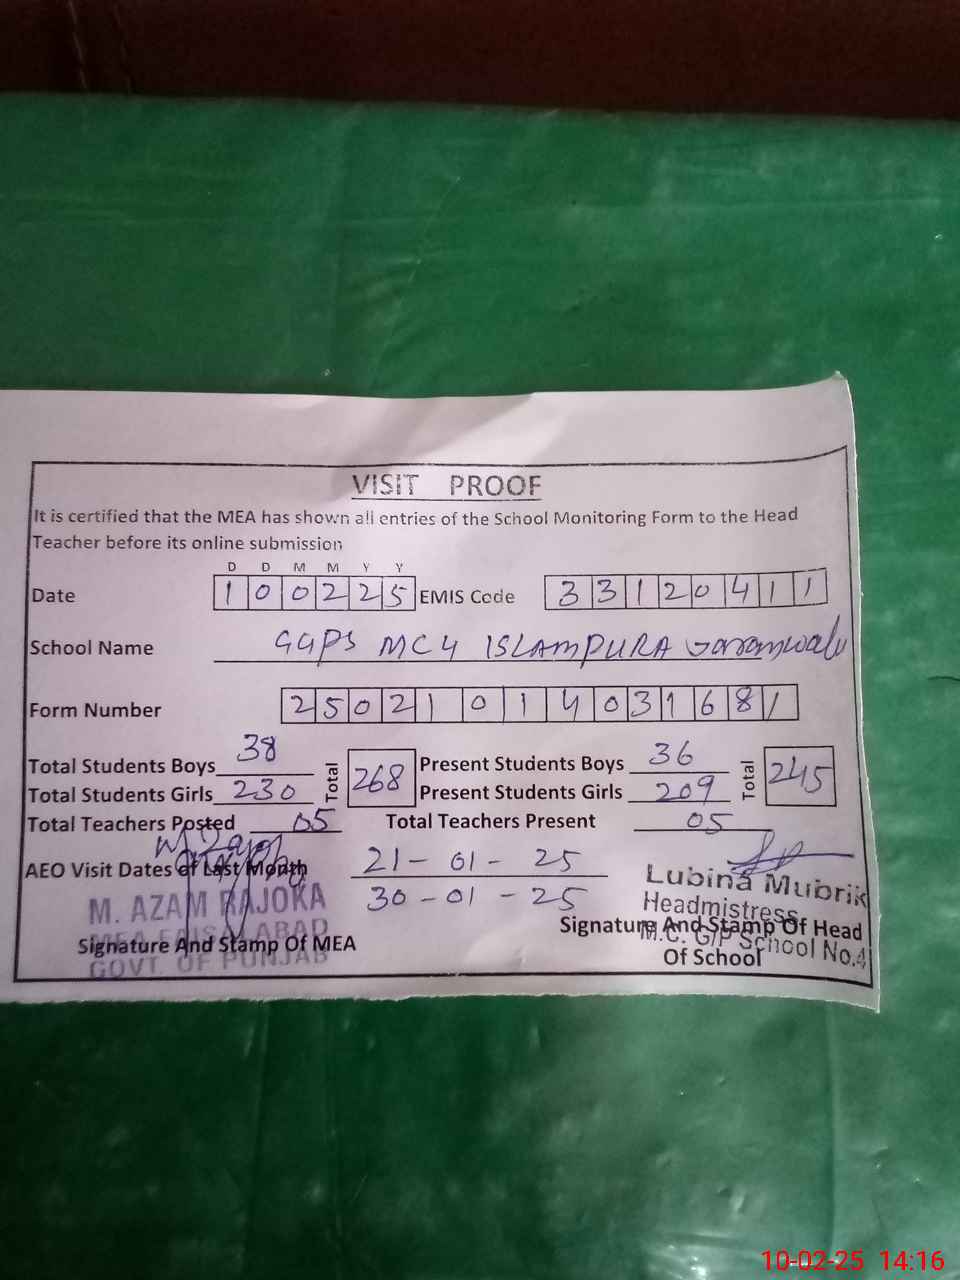 VISIT PROOF
It is certified that the MEA has shown all entries of the School Monitoring Form to the Head
Teacher before its online submission
D D M M Y Y
Date 1 0 0 2 2 5 EMIS Code 3 3 1 2 0 4 1 1
School Name GGPS MC 4 ISLAMPURA
Form Number 2 5 0 2 1 0 1 4 0 3 1 6 8 1
Total Students Boys 38 Total 268 Present Students Boys 36 Total 245
Total Students Girls 230 Present Students Girls 209
Total Teachers Posted 05 Total Teachers Present 05
AEO Visit Dates of Last Month 21-01-25
30-01-25
M. AZAM RAJOKA
MEA FAISALABAD
GOVT. OF PUNJAB
Signature And Stamp Of MEA
Lubina Mubrik
Headmistress
M.C. G/P School No.4
Signature And Stamp Of Head
Of School
10-02-25 14:16